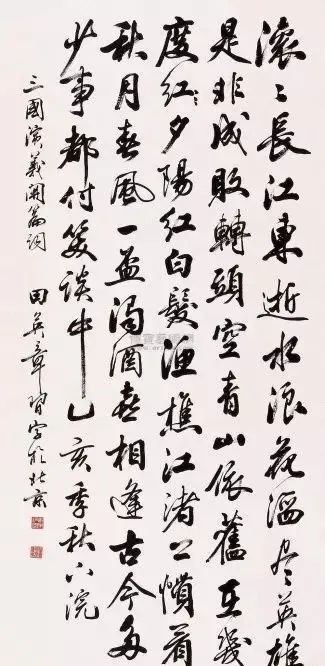 滚〻長江東逝水浪花淘尽英雄
是非成敗轉頭空青山依舊在幾
度红夕陽红白髮渔樵江渚上慣看
秋月春風一壶濁酒喜相逢古今多
少事都付笑談中乙亥季秋八浣
三國演義開篇詞 田英章習字於北京